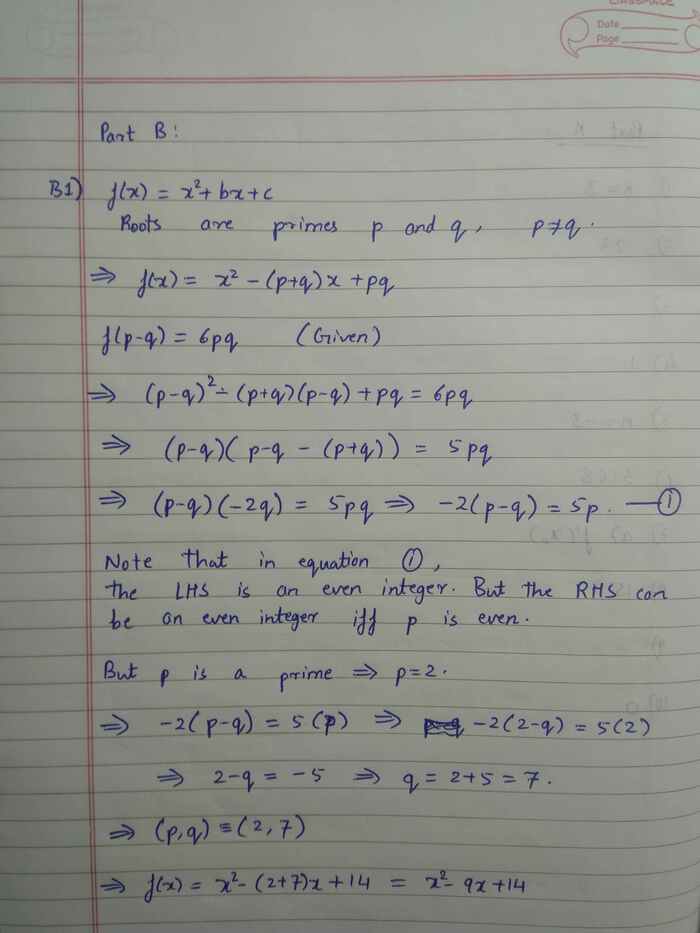 Date
Page
Part B:
B1) f(x) = x² + bx + c
Roots are primes p and q, p≠q.
⇒ f(x) = x² - (p+q)x + pq
f(p-q) = 6pq (Given)
⇒ (p-q)² - (p+q)(p-q) + pq = 6pq
⇒ (p-q)(p-q - (p+q)) = 5pq
⇒ (p-q)(-2q) = 5pq ⇒ -2(p-q) = 5p. —①
Note that in equation ①,
the LHS is an even integer. But the RHS can
be an even integer iff p is even.
But p is a prime ⇒ p=2.
⇒ -2(p-q) = 5(p) ⇒ -2(2-q) = 5(2)
⇒ 2-q = -5 ⇒ q = 2+5 = 7.
⇒ (p,q) ≡ (2,7)
⇒ f(x) = x² - (2+7)x + 14 = x² - 9x + 14